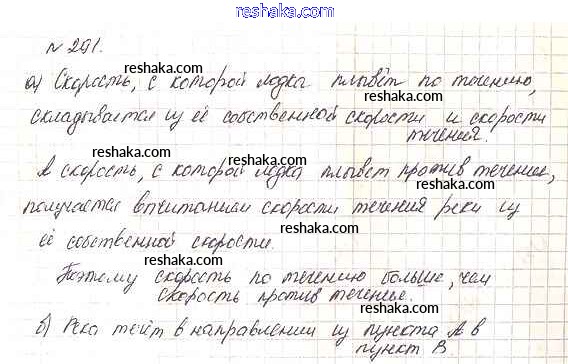 reshaka.com
№ 291.
reshaka.com
а) Скорость, с которой лодка плывёт по течению,
складывается из её собственной скорости и скорости
reshaka.com
reshaka.com
течения.
reshaka.com
А скорость, с которой лодка плывет против течение,
получается вычитанием скорости течения реки из
reshaka.com
reshaka.com
её собственной скорости.
reshaka.com
Поэтому скорость по течению больше, чем
reshaka.com
скорость против течение.
б) Река течёт в направлении из пункта А в
reshaka.com
пункт В